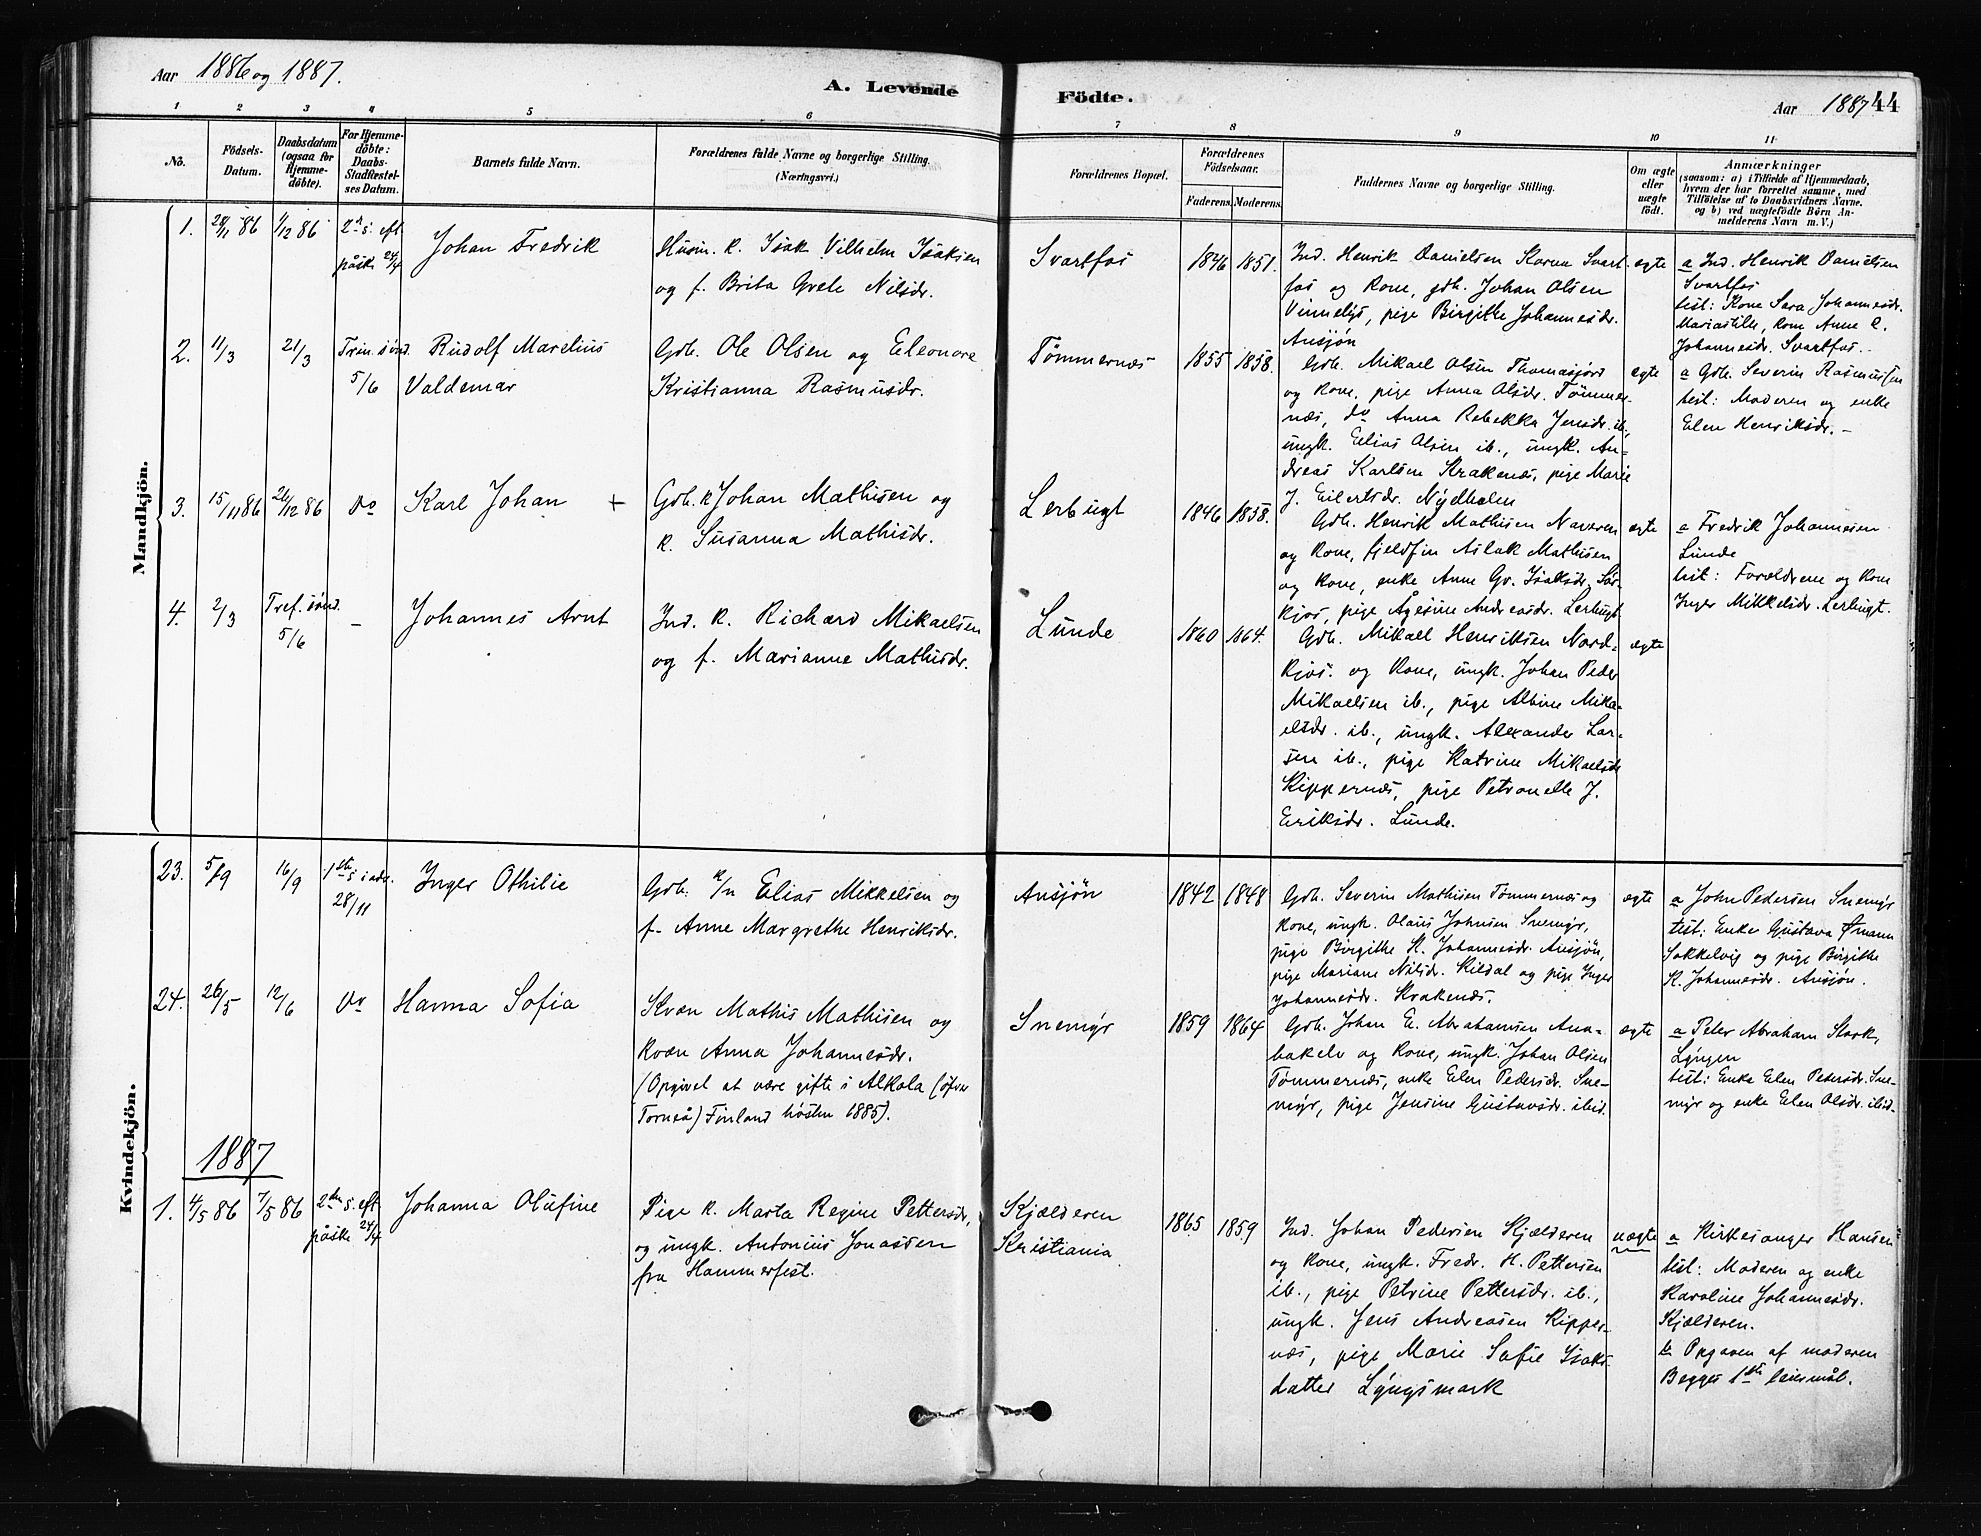 Aar 1886 og 1887.
A. Levende
Födte.
Aar 1887
44
1 2 3 4 5 6 7 8 9 10 11
No.
Födsels-
Datum.
Daabsdatum
(ogsaa for
Hjemme-
döbte).
For Hjemme-
döbte:
Daabs-
Stadfæstel-
ses Datum.
Barnets fulde Navn.
Forældrenes fulde Navne og borgerlige Stilling.
(Næringsvei.)
Forældrenes Bopæl.
Forældrenes
Födselsaar.
Faderens.
Moderens.
Faddernes Navne og borgerlige Stilling.
Om ægte
eller
uægte
födt.
Anmærkninger
(saasom: a) i Tilfælde af Hjemmedaab,
hvem der har forrettet samme, med
Tilföielse af to Daabsvidners Navne.
og b) ved uægtefödte Börn An-
melderens Navn m. V.)
Mandkjön.
1.
28/11 86
1/12 86
2n s. eft.
påske 24/4
Johan Fredrik
Husm. k. Isak Vilhelm Isaksen
og f. Brita Grete Nilsdr.
Svartfos
1846
1851.
Ind. Henrik Danielsen Karna Svart
fos og Kone, gdb. Johan Olsen
Vinnelys, pige Birgithe Johannesdr.
Ansjøn
ægte
a Ind. Henrik Danielsen
Svartfos
test: Kone Sara Johannesdr.
Mariastille, kone Anne C.
Johannesdr. Svartfos.-
2.
11/3
21/3
Trin. sönd.
5/6
Rudolf Marelius
Valdemar
Gdb. Ole Olsen og Eleonore
Kristianna Rasmusdr.
Tømmernæs
1855
1858.
Gdb. Mikael Olsen Thomasjord
og Kone, pige Anna Olsdr. Tømmer-
næs, do Anna Rebekka Jensdr. ib.,
ungk. Elias Olsen ib., ungk. An-
dreas Karlsen Krakenes, pige Marie
J. Eilertsdr. Nydholen
ægte
a Gdb. Severin Rasmussen
test: Moderen og enke
Elen Henriksdr. -
3.
15/11 86
26/12 86
Do
Karl Johan +
Gdb. k Johan Mathisen og
k. Susanna Mathisdr.
Lerbugt
1846
1858.
Gdb. Henrik Mathisen Navaren
og Kone, fjeldfin Aslak Mathisen
og Kone, enke Anne Gr. Isaksdr. Sör-
kjos, pige Ågesine Andreasdr. Lerbugt.
ægte
a Fredrik Johannesen
Lunde
test: Forældrene og Kone
Inger Mikkelsdr. Lerbugt.
4.
2/3
Tref. sönd.
5/6
-
Johannes Arnt
Ind. k. Richard Mikaelsen
og f. Marianne Mathisdr.
Lunde
1860
1864.
Gdb. Mikael Henriksen Nord-
kjos. og Kone, ungk. Johan Peder
Mikaelsen ib., pige Albine Mika-
elsdr. ib., ungk. Alexander Lar-
sen ib., pige Katrine Mikaelsdr.
Kippernes, pige Petronelle J.
Eriksdr. Lunde.
ægte
Kvindekjön.
23.
5/9
16/9
1ste s i adv.
28/11
Inger Othilie
Gdb. k/n Elias Mikkelsen og
f. Anne Margrethe Henriksdr.
Ansjøn
1842
1848
Gdb. Severin Mathisen Tømmernæs og
Kone, ungk. Olaus Johnsen Snemyr,
pige Birgithe K. Johannesdr. Ansjøn,
pige Mariane Nilsdr. Kildal og pige Inger
Johannesdr. Krakenæs.
ægte
a John Pedersen Snemyr
test: Enke Gustava Ømann
Sokkelvig og pige Birgithe
K. Johannesdr. Ansjøn.
24.
26/5
12/6
Do
Hanna Sofia
Kvæn Mathis Mathisen og
Kvæn Anna Johannesdr.
(Opgivet at være gifte i Alkola (öfver
Torneå) Finland hösten 1885).
Snemyr
1859
1864
Gdb. Johan E. Abrahamsen Ana-
bakelv og Kone, ungk. Johan Olsen
Tømmernæs, enke Elen Pedersdr. Sne-
myr, pige Jensine Gustavsdr. ibid.
ægte
a Peter Abraham Stark,
Lyngen
test: Enke Elen Pedersdr. Sne-
myr og enke Elen Olsdr. ibid.
1887
1.
4/5 86
7/5 86
2den s. eft
påske 24/4
Johanna Olufine
Pige k. Marta Regine Pettersdr,
og ungk. Antonius Jonassen
fra Hammerfest.
Kjælderen
Kristiania
1865
1859
Ind. Johan Pedersen Kjælderen
og Kone, ungk. Fredr. H. Pettersen
ib., pige Petrine Pettersdr. ib.,
ungk. Jens Andreasen Kipper-
næs, pige Marie Sofie Isaks-
datter Lyngsmark
uægte
a Kirkesanger Hansen
test: Moderen og enke
Karoline Johannesdr.
Kjælderen.
b Opgaven af moderen
Begges 1ste leiermål.